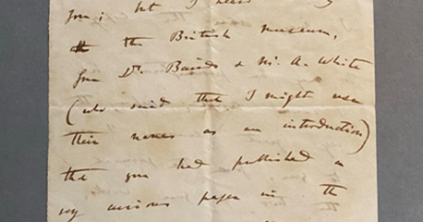 you; but I heard
at the British Museum,
from Dr. Baird & Mr. A. White
(who said that I might use
their names as an introduction)
that you had published a
very curious paper in the